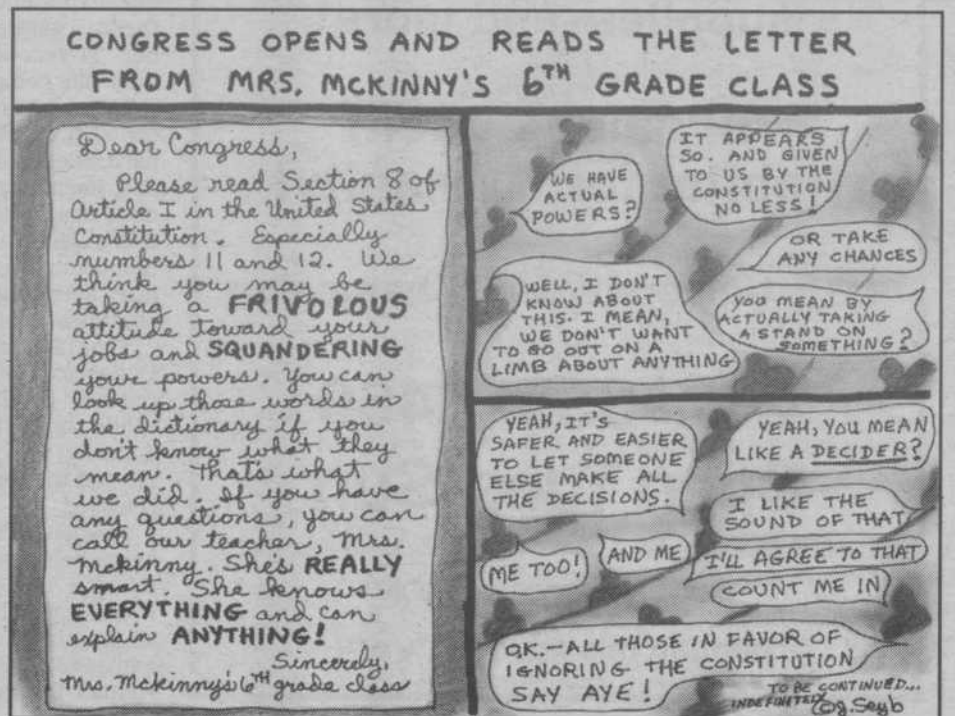 CONGRESS OPENS AND READS THE LETTER
FROM MRS. MCKINNY'S 6TH GRADE CLASS
Dear Congress,
Please read Section 8 of
Article I in the United States
Constitution. Especially
numbers 11 and 12. We
think you may be
taking a FRIVOLOUS
attitude toward your
jobs and SQUANDERING
your powers. You can
look up those words in
the dictionary if you
don't know what they
mean. That's what
we did. If you have
any questions, you can
call our teacher, Mrs.
Mckinny. She's REALLY
smart. She knows
EVERYTHING and can
explain ANYTHING!
Sincerely,
Mrs. Mckinny's 6TH grade class
WE HAVE
ACTUAL
POWERS?
IT APPEARS
SO. AND GIVEN
TO US BY THE
CONSTITUTION
NO LESS!
WELL, I DON'T
KNOW ABOUT
THIS. I MEAN,
WE DON'T WANT
TO GO OUT ON A
LIMB ABOUT ANYTHING
OR TAKE
ANY CHANCES
YOU MEAN BY
ACTUALLY TAKING
A STAND ON
SOMETHING?
YEAH, IT'S
SAFER AND EASIER
TO LET SOMEONE
ELSE MAKE ALL
THE DECISIONS.
YEAH, YOU MEAN
LIKE A DECIDER?
I LIKE THE
SOUND OF THAT
ME TOO!
AND ME
I'LL AGREE TO THAT
COUNT ME IN
O.K.—ALL THOSE IN FAVOR OF
IGNORING THE CONSTITUTION
SAY AYE!
TO BE CONTINUED...
INDEFINITELY
©J. Seyb